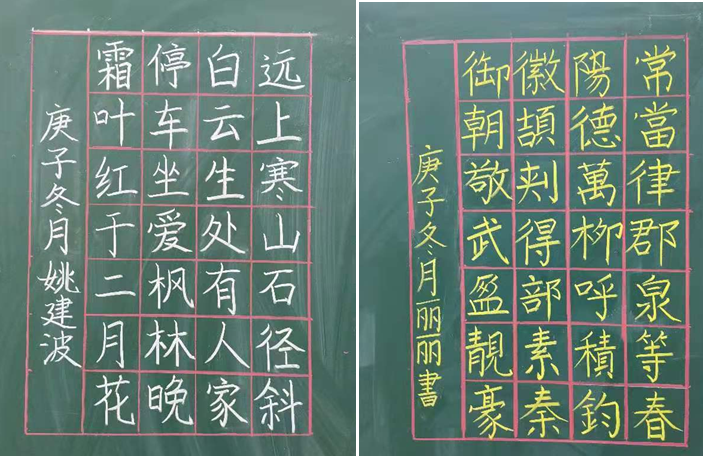 远上寒山石径斜
白云生处有人家
停车坐爱枫林晚
霜叶红于二月花
庚子冬月姚建波
常當律郡泉等春
陽德萬柳呼積鈞
徽頡得部素秦
御朝敬武盈靚豪
庚子冬月丽丽書